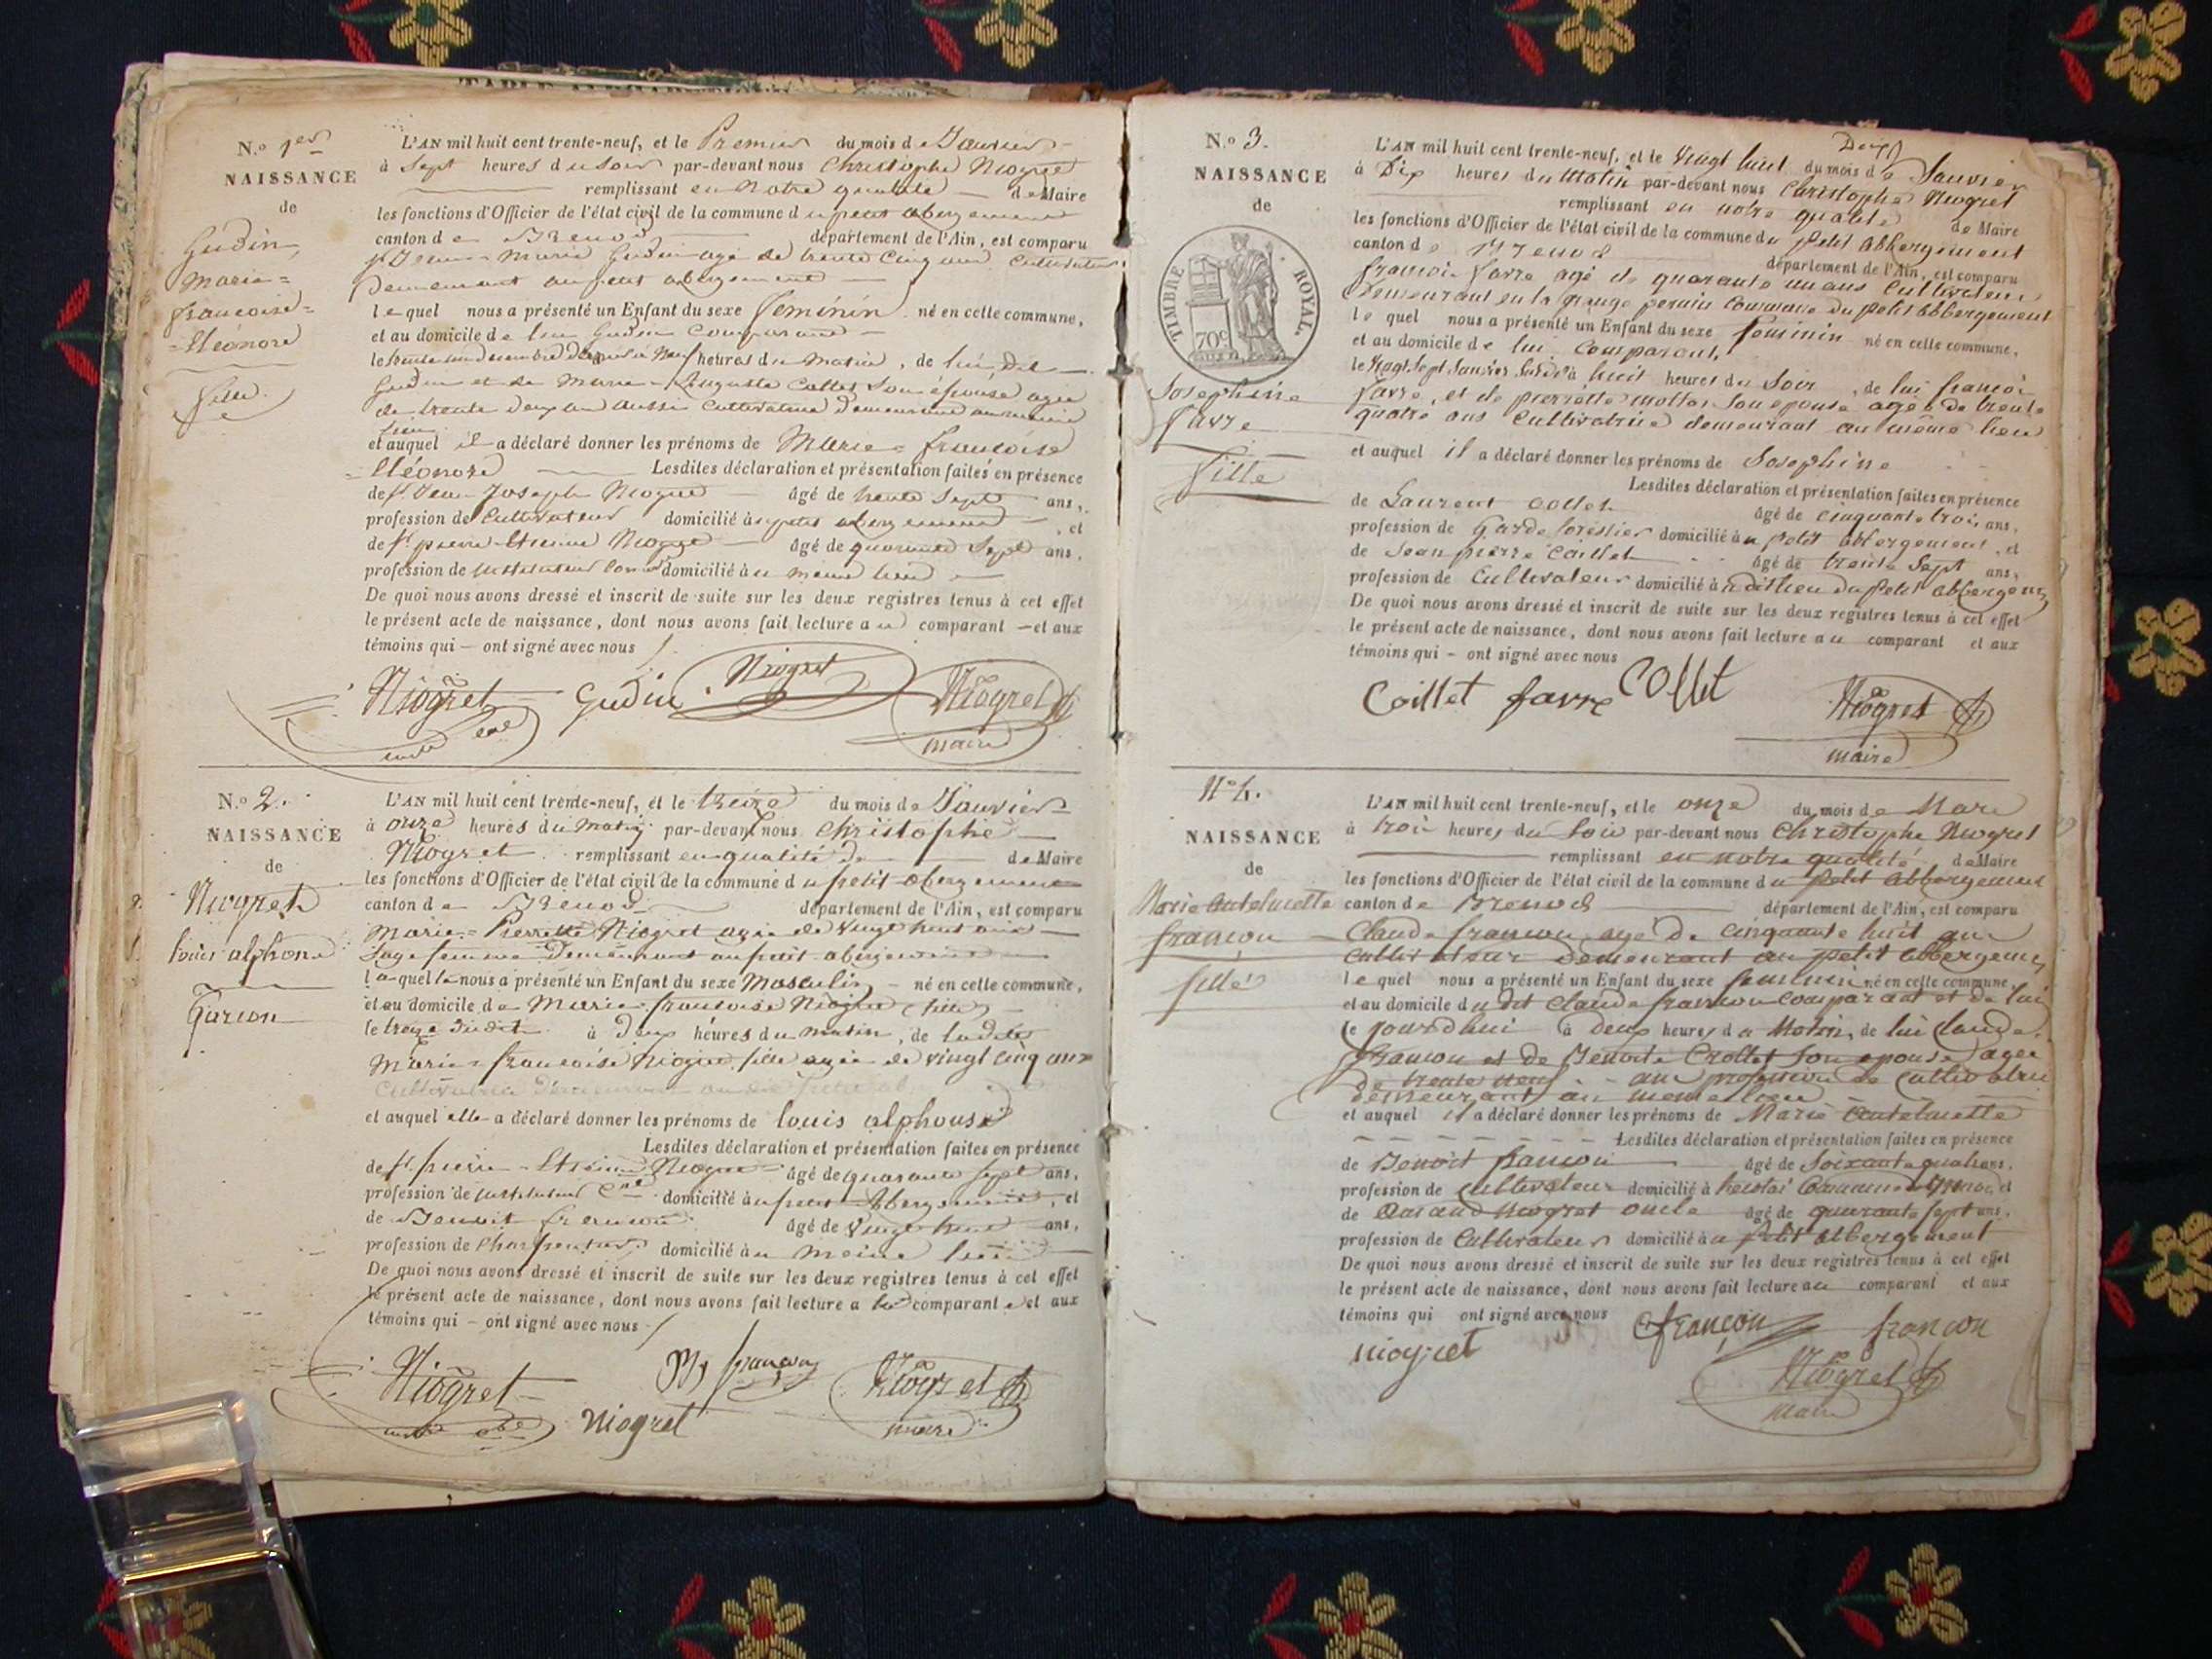 N.o 1er
NAISSANCE
de
Gudin,
Marie=
françoise=
=Eléonore
fille.
L'AN mil huit cent trente-neuf, et le Premier du mois de Janvier
à Sept heures du soir par-devant nous Christophe Niogret
remplissant en notre qualité de Maire
les fonctions d'Officier de l'état civil de la commune du petit abergement
canton de Brenod département de l'Ain, est comparu
Marie Gudin agé de trente cinq ans Cultivateur
demeurant au petit abergement
lequel nous a présenté un Enfant du sexe feminin né en cette commune,
et au domicile de Gudin comparant
le trente un decembre heures du matin, de lui dit
Gudin et de Marie Auguste Collet son épouse agée
de trente deux ans aussi Cultivatrice demeurant au même
lieu
et auquel il a déclaré donner les prénoms de Marie=françoise
=Eléonore Lesdites déclaration et présentation faites en présence
de Sr. Jean Joseph Niogret âgé de trente Sept ans,
profession de Cultivateur domicilié au petit abergement, et
de Sr. pierre Etienne Niogret âgé de quarante Sept ans,
profession de instituteur domicilié au même lieu
De quoi nous avons dressé et inscrit de suite sur les deux registres tenus à cet effet
le présent acte de naissance, dont nous avons fait lecture au comparant et aux
témoins qui ont signé avec nous
Niogret Gudin Niogret Niogret
maire
N.o 2.
NAISSANCE
de
Niogret
louis alphonse
Garson
L'AN mil huit cent trente-neuf, et le treize du mois de Janvier
à onze heures du matin par-devant nous Christophe
Niogret remplissant en qualité de de Maire
les fonctions d'Officier de l'état civil de la commune du petit abergement
canton de Brenod département de l'Ain, est comparu
Marie=Pierrette Niogret agée de vingt huit ans
Sage femme Demeurant au petit abergement
laquelle nous a présenté un Enfant du sexe Masculin né en cette commune,
et au domicile de Marie françoise Niogret fille
le treize dudit à deux heures du matin, de ladite
Marie=françoise Niogret fille agée de vingt cinq ans
Cultivatrice Demeurant
et auquel elle a déclaré donner les prénoms de louis alphonse
Lesdites déclaration et présentation faites en présence
de Sr. pierre Etienne Niogret âgé de quarante sept ans,
profession de instituteur domicilié au petit Abergement, et
de Benoit françon âgé de vingt ans,
profession de Charpentier domicilié au même lieu
De quoi nous avons dressé et inscrit de suite sur les deux registres tenus à cet effet
le présent acte de naissance, dont nous avons fait lecture a la comparante et aux
témoins qui ont signé avec nous
Niogret françon Niogret
Niogret maire
Deux
N.o 3.
NAISSANCE
de
TIMBRE ROYAL.
70c
Josephine
favre
fille
L'AN mil huit cent trente-neuf, et le vingt huit du mois de Janvier
à Dix heures du Matin par-devant nous Christophe Niogret
remplissant en notre qualité de Maire
les fonctions d'Officier de l'état civil de la commune du Petit Abbergement
canton de Brenod département de l'Ain, est comparu
françois favre agé de quarante un ans Cultivateur
Demeurant en la grange commune du petit Abbergement
lequel nous a présenté un Enfant du sexe feminin né en cette commune,
et au domicile de lui comparant,
le vingt Sept Janvier à huit heures du Soir, de lui françois
favre, et de pierrette mottet son epouse agée de trente
quatre ans Cultivatrice demeurant au même lieu
et auquel il a déclaré donner les prénoms de Josephine
Lesdites déclaration et présentation faites en présence
de Laurent Collet âgé de cinquante trois ans,
profession de Garde forestier domicilié au petit abbergement, et
de Jean pierre Caillet âgé de trente Sept ans,
profession de Cultivateur domicilié au dit lieu du petit abbergement
De quoi nous avons dressé et inscrit de suite sur les deux registres tenus à cet effet
le présent acte de naissance, dont nous avons fait lecture au comparant et aux
témoins qui ont signé avec nous
Caillet favre Collet
Niogret
maire
N.o 4.
NAISSANCE
de
Marie antelmette
françon
fille
L'AN mil huit cent trente-neuf, et le onze du mois de Mars
à trois heures du Soir par-devant nous Christophe Niogret
remplissant en notre qualité de Maire
les fonctions d'Officier de l'état civil de la commune du petit Abbergement
canton de Brenod département de l'Ain, est comparu
Claude françon agé de cinquante huit ans
cultivateur demeurant au petit abbergement
lequel nous a présenté un Enfant du sexe feminin né en cette commune,
et au domicile dudit Claude françon comparant et de lui
ce jourd'hui à deux heures du Matin, de lui Claude
françon et de Benoite Crollet son epouse agée
de trente neuf ans profession de Cultivatrice
demeurant au même lieu
et auquel il a déclaré donner les prénoms de Marie antelmette
Lesdites déclaration et présentation faites en présence
de Benoit françon âgé de Soixante quatre ans,
profession de Cultivateur domicilié à commune et
de Niogret oncle âgé de quarante sept ans,
profession de Cultivateur domicilié au Petit abbergement
De quoi nous avons dressé et inscrit de suite sur les deux registres tenus à cet effet
le présent acte de naissance, dont nous avons fait lecture au comparant et aux
témoins qui ont signé avec nous françon françon
niogret
Niogret
maire